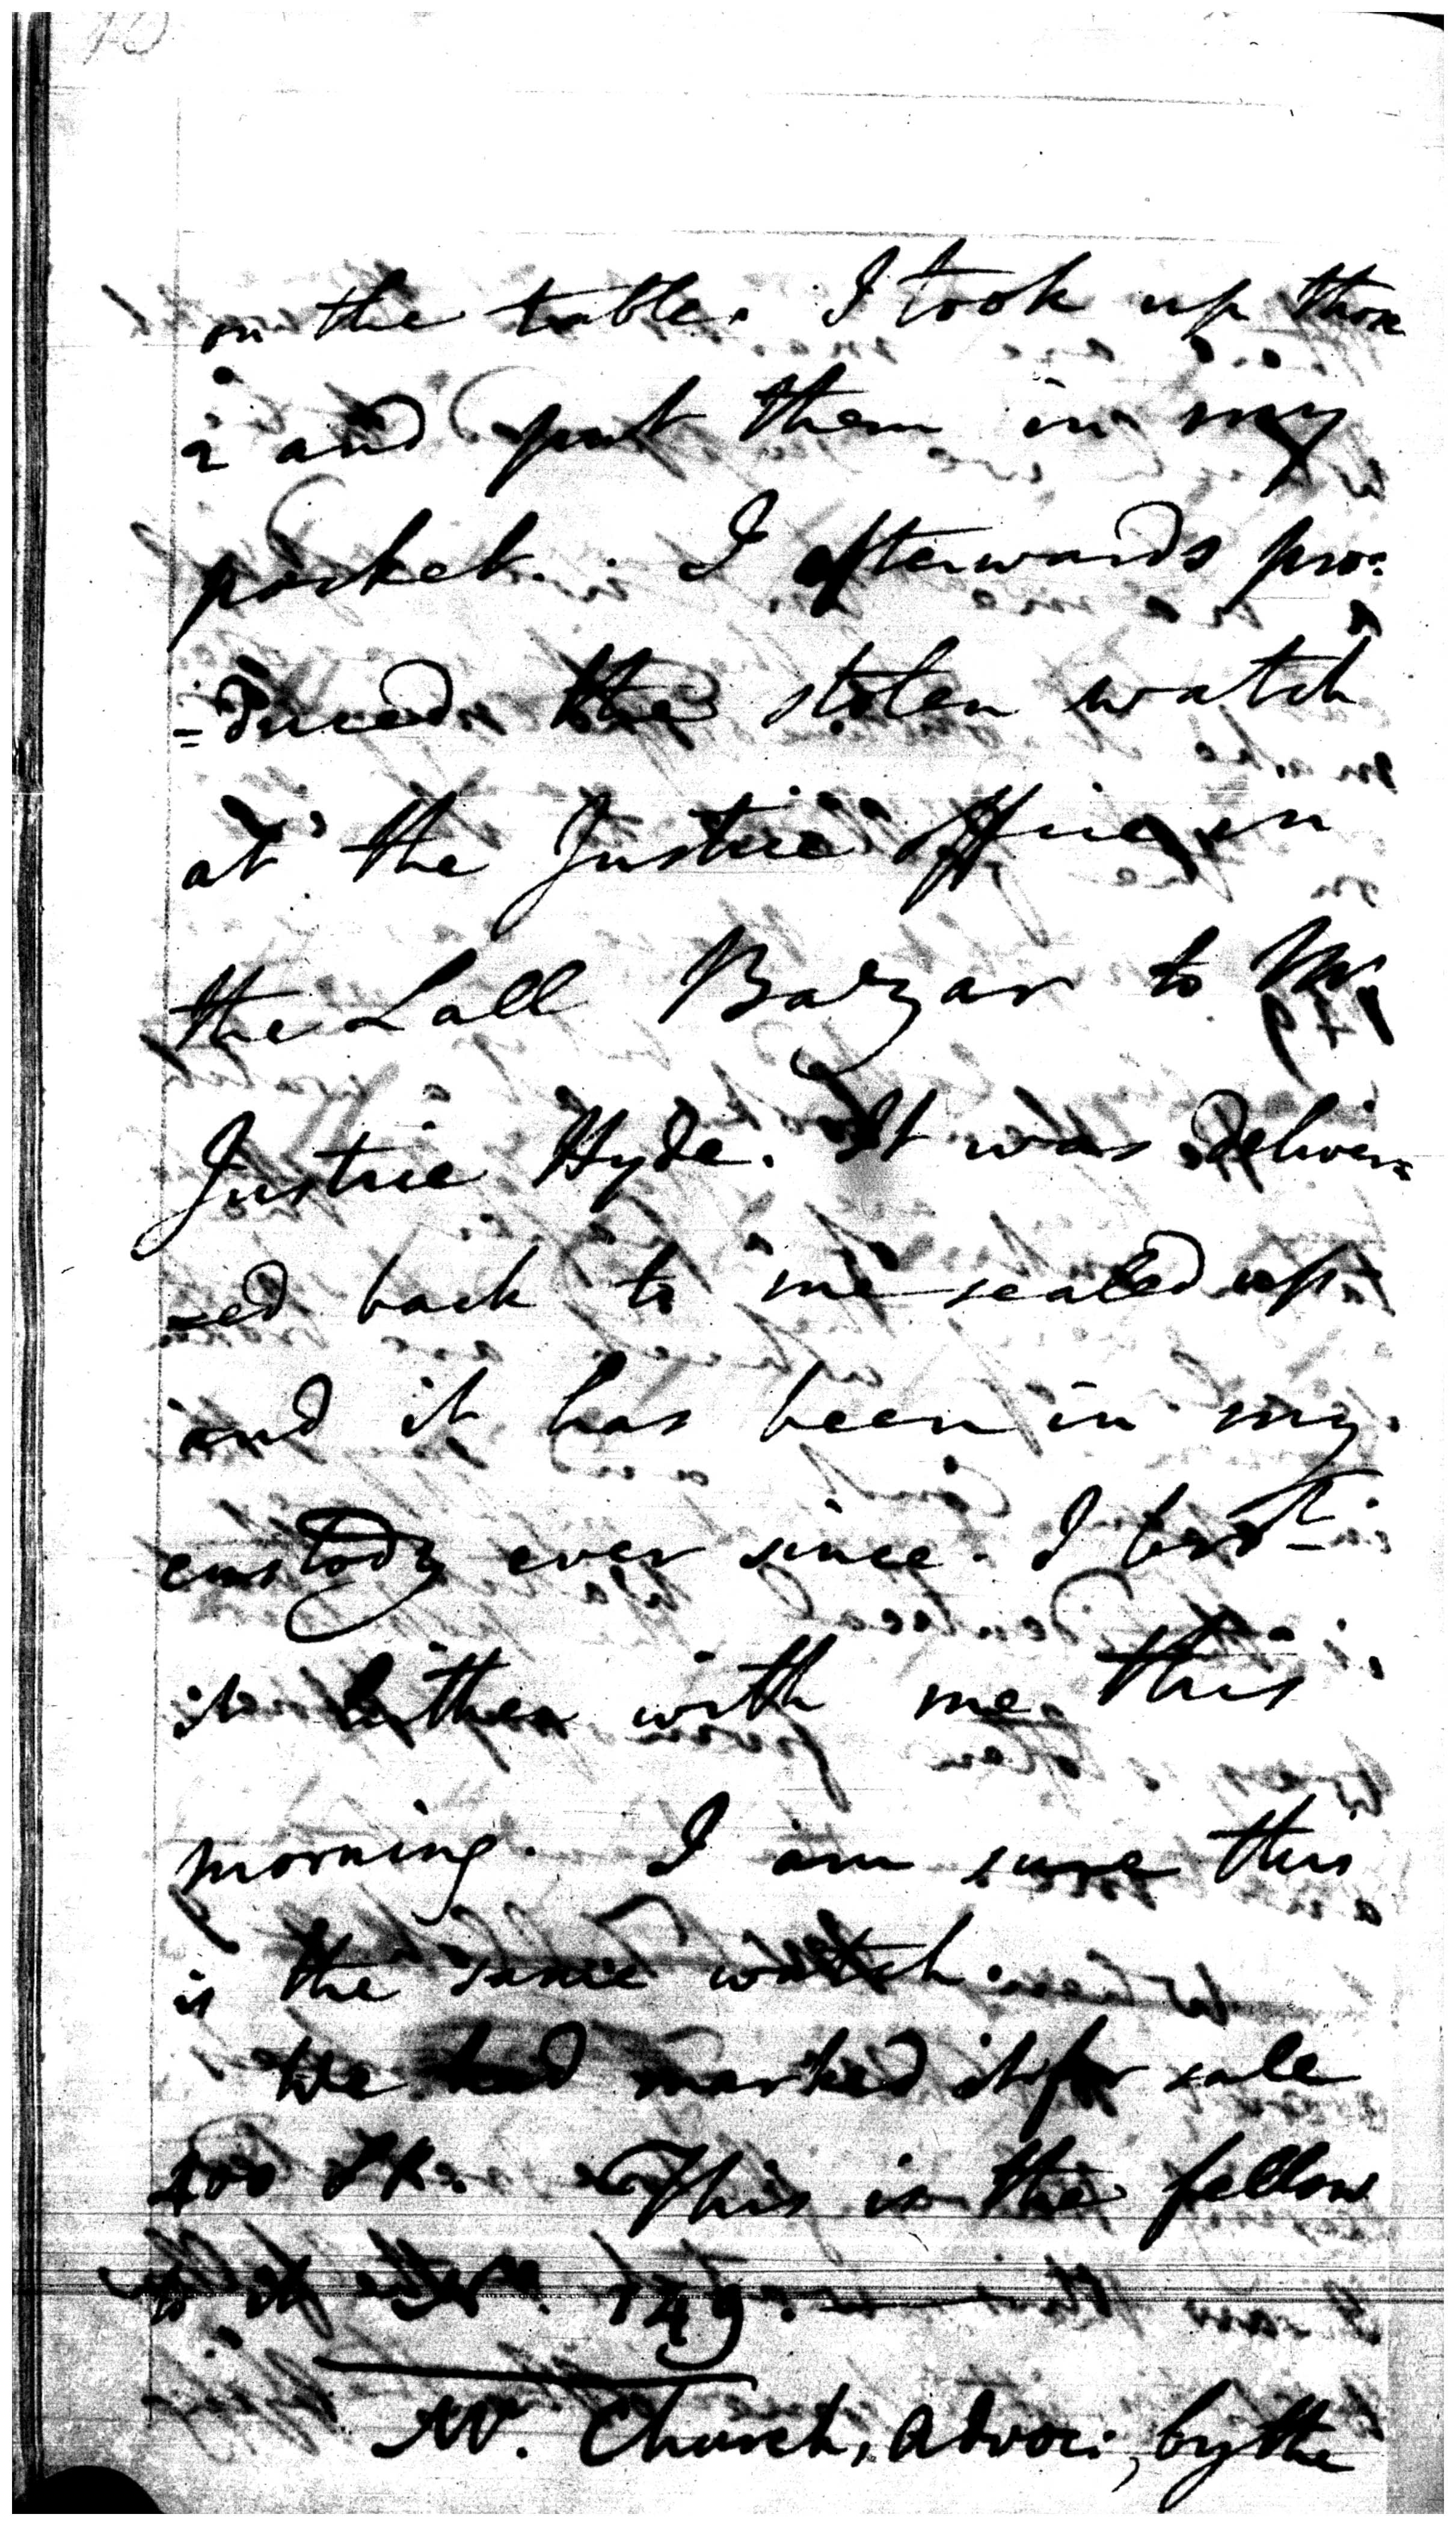 on the table. I took up those
2 and put them in my
pocket. I afterwards pro=
=duced the stolen watch
at the Justice Office in
the Lall Bazar to Mr
Justice Hyde. It was deliver=
=ed back to me sealed up
and it has been in my
custody ever since. I brot
it hither with me this
morning. I am sure this
is the same watch.
We had marked it for sale
This is the fellow
to it No. 149.
Mr. Church, Advoc:, by the